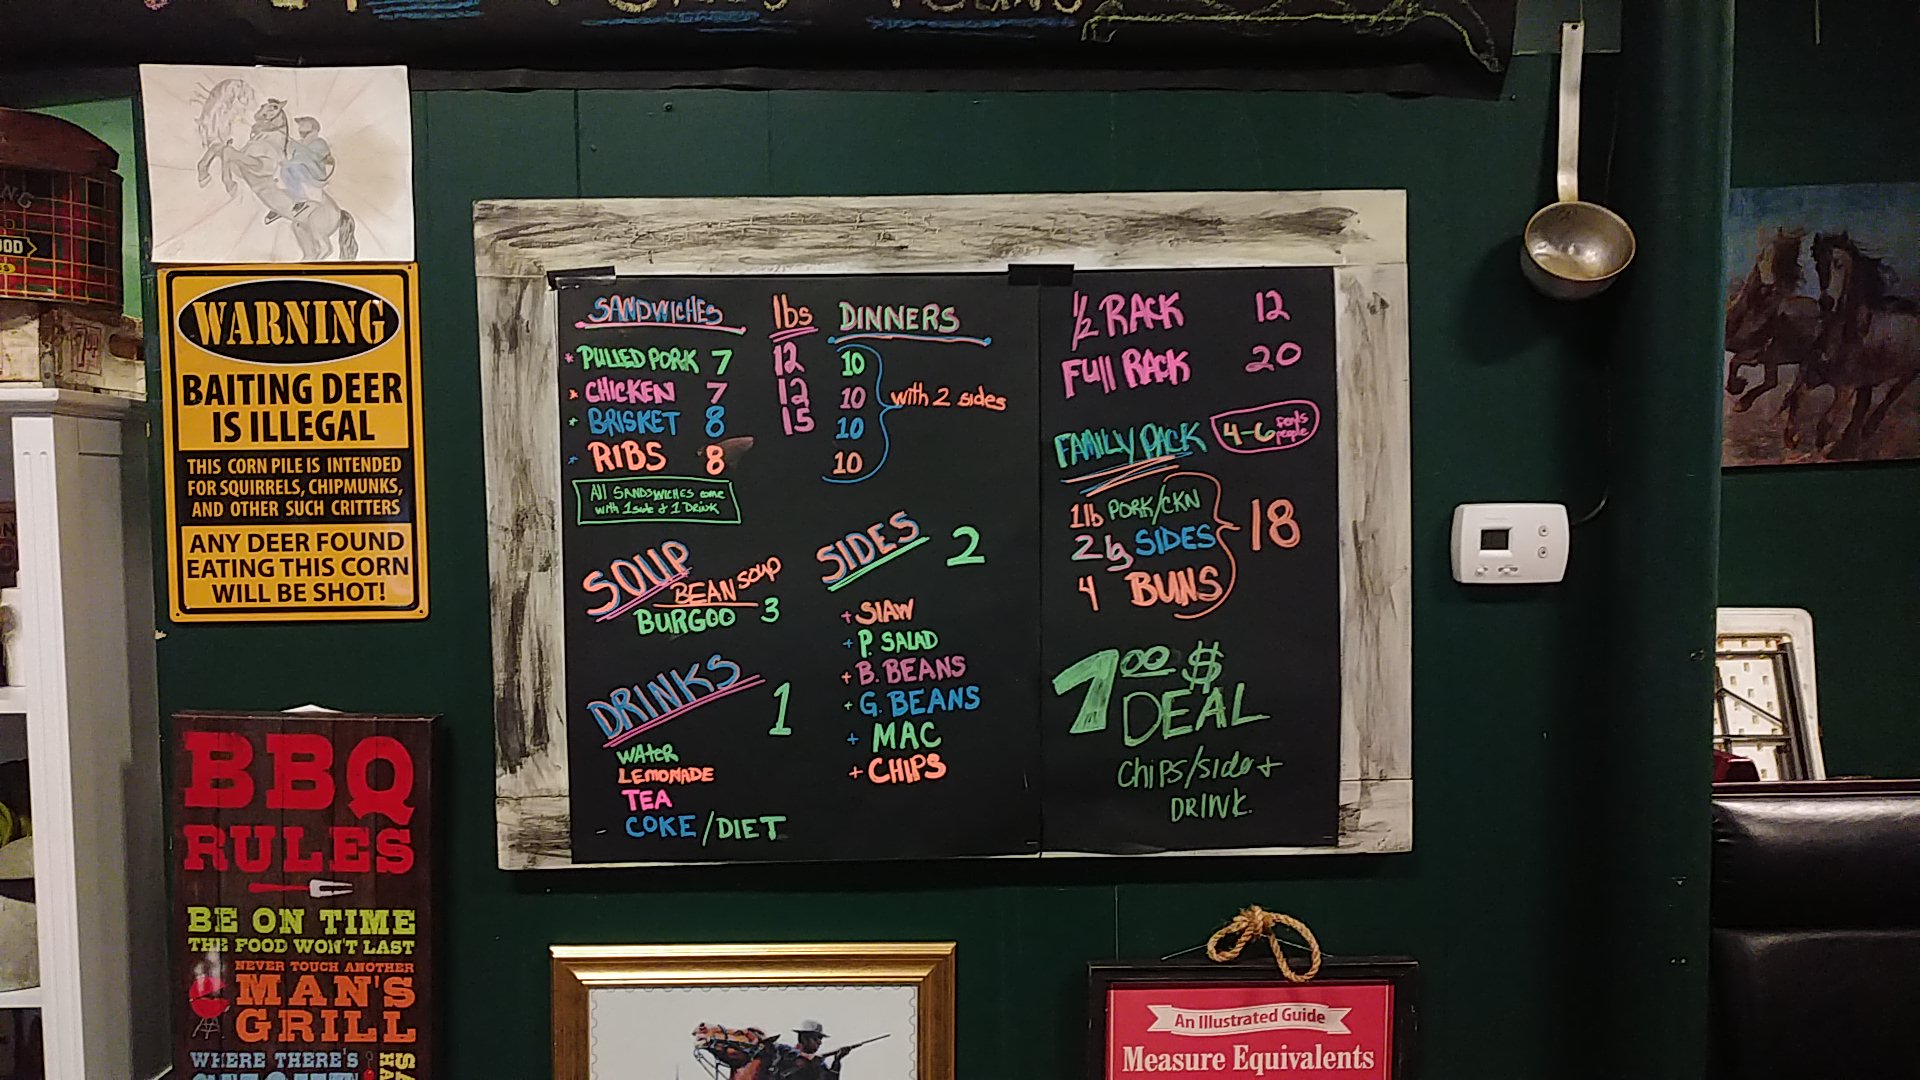 WARNING
BAITING DEER
IS ILLEGAL
THIS CORN PILE IS INTENDED
FOR SQUIRRELS, CHIPMUNKS,
AND OTHER SUCH CRITTERS
ANY DEER FOUND
EATING THIS CORN
WILL BE SHOT!
BBQ
RULES
BE ON TIME
THE FOOD WON'T LAST
NEVER TOUCH ANOTHER
MAN'S
GRILL
WHERE THERE'S
SANDWICHES lbs DINNERS
* PULLED PORK 7 12 10
* CHICKEN 7 12 10 with 2 sides
* BRISKET 8 15 10
* RIBS 8 10
All SANDSWICHES come
with 1 side + 1 Drink
SOUP
BEAN soup
BURGOO 3
DRINKS 1
WAtER
LEMONADE
TEA
- COKE/DIET
SIDES 2
+ SlAW
+ P. SALAD
+ B. BEANS
+ G. BEANS
+ MAC
+ CHIPS
1/2 RACK 12
Full RACK 20
FAMILY PACK 4-6 people
1lb PORK/CKN
2 lg SIDES 18
4 BUNS
1.00 $
DEAL
CHIPS/side +
DRINK.
An Illustrated Guide
Measure Equivalents